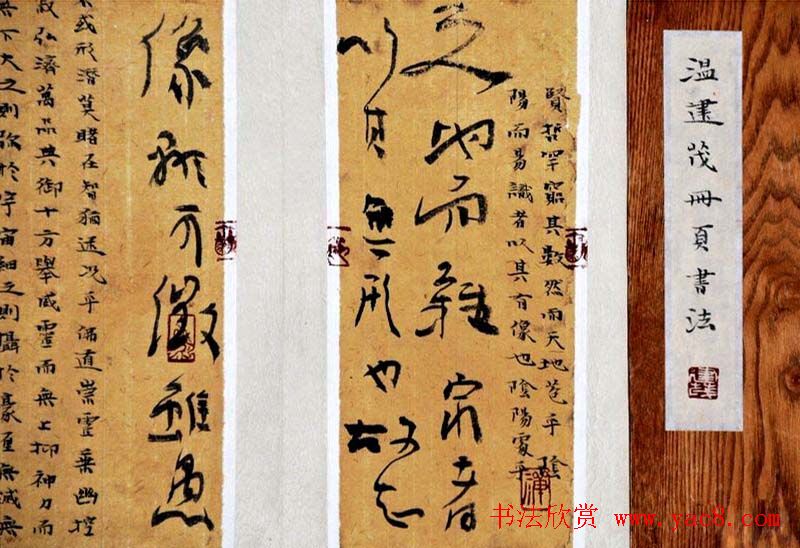 温建茂冊頁書法
賢哲罕窮其數然而天地苞乎陰
陽而易識者以其有像也陰陽處乎
天地而難窮者
以其無形也故知
像顯可徵雖愚
不或形潛莫睹在智猶迷况乎佛道崇虛乘幽控
寂弘濟萬品典御十方舉威靈而無上抑神力而
無下大之則弥於宇宙細之則攝於豪釐無滅無
书法欣赏 www.yac8.com